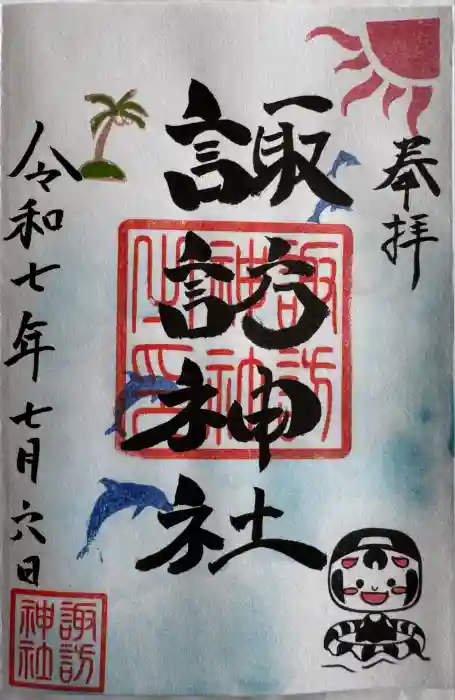 奉拝
諏訪神社
諏訪
神社
令和七年七月六日
諏訪
神社